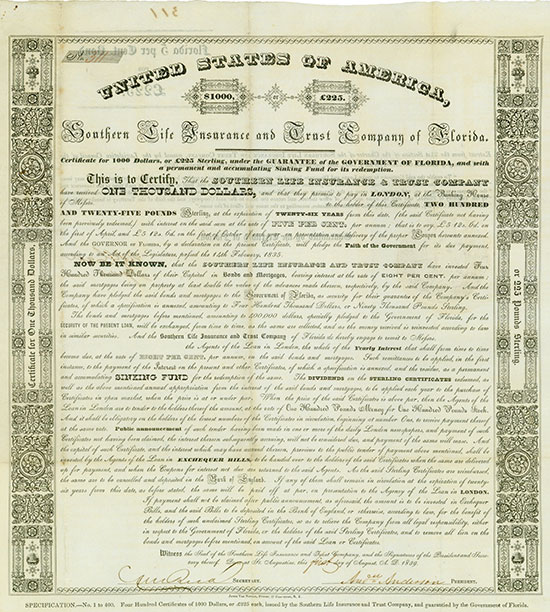 No.
UNITED STATES OF AMERICA,
$1000, £225.
Southern Life Insurance and Trust Company of Florida.
Certificate for 1000 Dollars, or £225 Sterling, under the GUARANTEE of the GOVERNMENT OF FLORIDA, and with
a permanent and accumulating Sinking Fund for its redemption.
This is to Certify, That the SOUTHERN LIFE INSURANCE & TRUST COMPANY
have received ONE THOUSAND DOLLARS, and that they promise to pay in LONDON, at the Banking House
of Messrs. to the holder of this Certificate TWO HUNDRED
AND TWENTY-FIVE POUNDS Sterling, at the expiration of TWENTY-SIX YEARS from this date, (the said Certificate not having
been previously redeemed,) and interest on the said sum at the rate of FIVE PER CENT. per annum; that is to say, £5 12s. 6d. on
the first of April, and £5 12s. 6d. on the first of October of each year, on presentation and delivery of the proper Coupon hereunto annexed.
And the GOVERNOR OF FLORIDA, by a declaration on the present Certificate, will pledge the Faith of the Government for its due payment,
according to an Act of the Legislature, passed the 14th February, 1835.
NOW BE IT KNOWN, that the SOUTHERN LIFE INSURANCE AND TRUST COMPANY have invested Four
Hundred Thousand Dollars of their Capital in Bonds and Mortgages, bearing interest at the rate of EIGHT PER CENT. per annum,
the said mortgages being on property at least double the value of the advances made thereon, respectively, by the said Company. And the
Company have pledged the said bonds and mortgages to the Government of Florida, as security for their guarantee of the Company's Certi-
ficates, of which a specification is annexed, amounting to Four Hundred Thousand Dollars, or Ninety Thousand Pounds Sterling.
The bonds and mortgages before mentioned, amounting to $400,000 dollars, specially pledged to the Government of Florida, for the
SECURITY OF THE PRESENT LOAN, will be exchanged, from time to time, as the same are collected, and the money received is reinvested according to law
in similar securities. And the Southern Life Insurance and Trust Company of Florida do hereby engage to remit to Messrs.
the Agents of the Loan in London, the whole of the Yearly Interest that shall from time to time
become due, at the rate of EIGHT PER CENT. per annum, on the said bonds and mortgages. Such remittances to be applied, in the first
instance, to the payment of the Interest on the present and other Certificates, of which a specification is annexed, and the residue, as a permanent
and accumulating SINKING FUND for the redemption of the same. The DIVIDENDS on the STERLING CERTIFICATES redeemed, as
well as the above mentioned annual appropriation from the interest of the said bonds and mortgages, to be applied to the purchase of
Certificates in open market, when the price is at or under par. When the price of the said Certificates is above par, then the Agents of the
Loan in London are to tender to the holders thereof the amount, at the rate of One Hundred Pounds Money for One Hundred Pounds Stock,
and it shall be obligatory on the holders of the lowest numbers of the Certificates in circulation, beginning at number One, to receive payment thereof
at the same rate. Public announcement of such tender having been made in one or more of the daily London newspapers, and payment of such
Certificates not having been claimed, the interest thereon subsequently accruing, will not be considered due, and payment of the same will cease. And
the capital of such Certificates, and the interest which may have accrued thereon, previous to the public tender of payment above mentioned, shall be
invested by the Agents of the Loan in EXCHEQUER BILLS, to be handed over to the holders of the said Certificates when the same are delivered
up for payment, and when the Coupons for interest not due are returned to the said Agents. As the said Sterling Certificates are reimbursed,
the same are to be cancelled and deposited in the Bank of England. If any of them shall remain in circulation at the expiration of twenty-
six years from this date, as before stated, the same will be paid off at par, on presentation to the Agency of the Loan in LONDON.
If payment shall not be claimed after public announcement, as aforesaid, the amount is to be invested in Exchequer
Bills, and the said Bills to be deposited in the Bank of England, or otherwise, according to law, for the benefit of
the holders of such unclaimed Sterling Certificates, so as to relieve the Company from all legal responsibility, either
in respect to the Government of Florida, or the holders of the said Sterling Certificates, and to remove all lien on the
bonds and mortgages before mentioned, on account of the said Loan or Certificates.
Witness the Seal of the Southern Life Insurance and Trust Company, and the Signatures of the President and Secre-
tary thereof. Done at St. Augustine this first day of August, A. D. 1839.
SECRETARY. PRESIDENT.
Certificate for One Thousand Dollars,
or 225 Pounds Sterling.
SPECIFICATION.—No. 1 to 400. Four Hundred Certificates of 1000 Dollars, or £225 each, issued by the Southern Life Insurance and Trust Company, and guarantied by the Government of Florida.